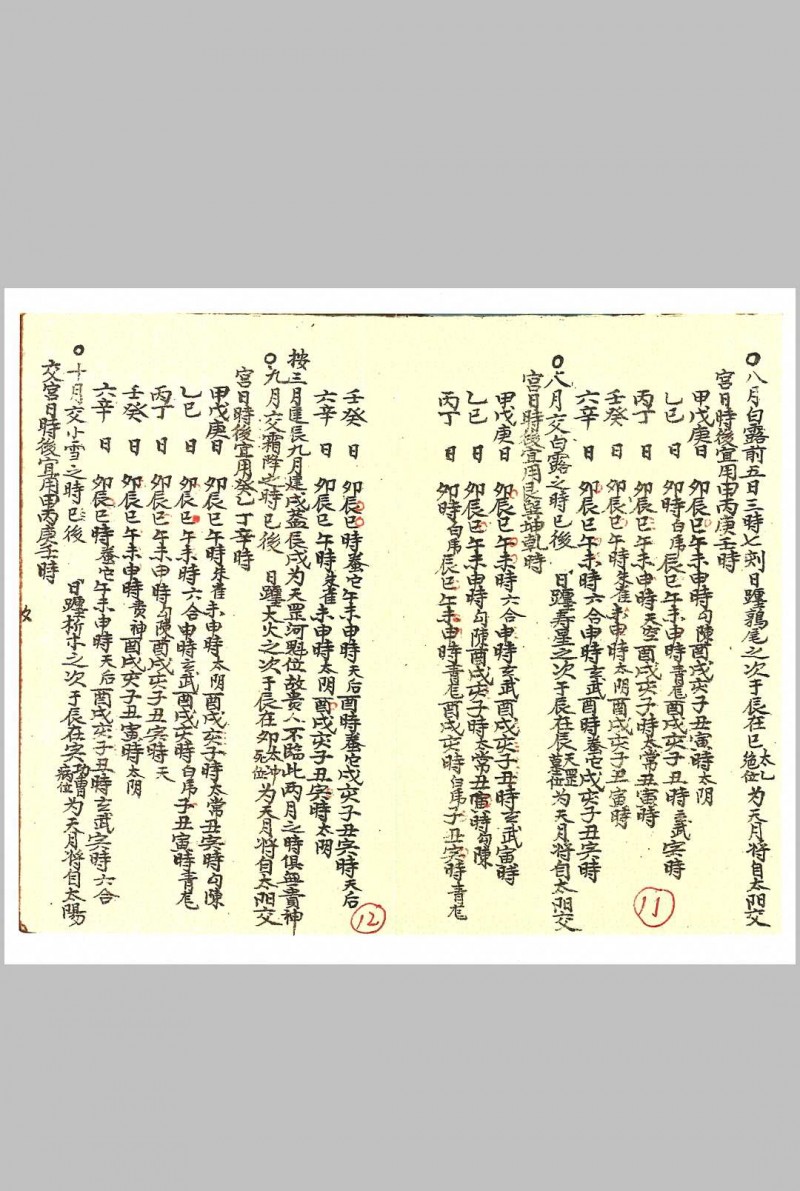 ○八月白露前五日三時七刻日躔鶉尾之次于辰在巳太乙絶位为天月將自太阳交
宮日時後宜用甲丙庚壬時
甲戊庚日 卯辰巳午未申時勾陳酉戌亥子丑寅時太阴
乙巳日 卯時白虎辰巳午未申時青龙酉戌亥子丑時玄武寅時
丙丁日 卯辰巳午未申時天空酉戌亥子時太常丑寅時
壬癸日 卯辰巳午時朱雀未申時太阴酉戌亥子丑寅時
六辛日 卯辰巳午未時六合申時玄武酉時螣它戌亥子丑寅時
○八月交白露之時已後 日躔寿星之次于辰在辰天罡墓位为天月將自太阳交
宮日時後宜用艮巽坤乾時
甲戊庚日 卯辰巳午未時六合申時玄武酉戌亥子丑時玄武寅時
乙巳日 卯辰巳午未申時勾陳酉戌亥子時太常丑寅時勾陳
丙丁日 卯時白虎辰巳午未申時青龙酉戌亥時白虎子丑寅時青龙
11
壬癸日 卯辰巳時螣它午未申時天后酉時螣它戌亥子丑寅時天后
六辛日 卯辰巳午時朱雀未申時太阴酉戌亥子丑寅時太阴
按三月建辰九月建戌盖辰戌为天罡河魁位故貴人不臨此两月之時俱無貴神
○九月交霜降之時已後 日躔大火之次于辰在卯太冲死位为天月將自太阳交
宮日時後宜用癸乙丁辛時
甲戊庚日 卯辰巳午時朱雀未申時太阴酉戌亥子時太常丑寅時勾陳
乙巳日 卯辰巳午未時六合申時玄武酉戌亥時白虎子丑寅時青龙
丙丁日 卯辰巳午未申時勾陳酉戌亥子丑寅時天
壬癸日 卯辰巳午未申時貴神酉戌亥子丑寅時太阴
六辛日 卯辰巳時螣它午未申時天后酉戌亥子丑時玄武寅時六合
○十月交小雪之時已後 日躔析木之次于辰在寅功曹病位为天月將自太陽
交宮日時後宜用甲丙庚壬時
12